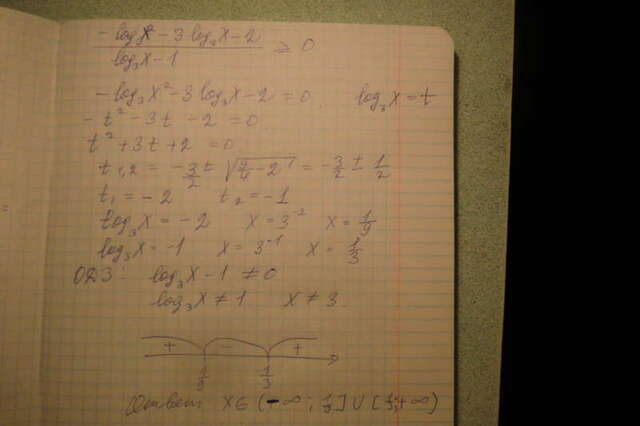 (-log₃x² - 3 log₃x - 2) / (log₃x - 1) ≥ 0
-log₃x² - 3 log₃x - 2 = 0 log₃x = t
-t² - 3t - 2 = 0
t² + 3t + 2 = 0
t₁,₂ = -3/2 ± √(9/4 - 2) = -3/2 ± 1/2
t₁ = -2 t₂ = -1
log₃x = -2 x = 3⁻² x = 1/9
log₃x = -1 x = 3⁻¹ x = 1/3
ОДЗ: log₃x - 1 ≠ 0
log₃x ≠ 1 x ≠ 3.
+ - +
1/9 1/3
Ответ: x ∈ (-∞; 1/9] ∪ [1/3; +∞)
=